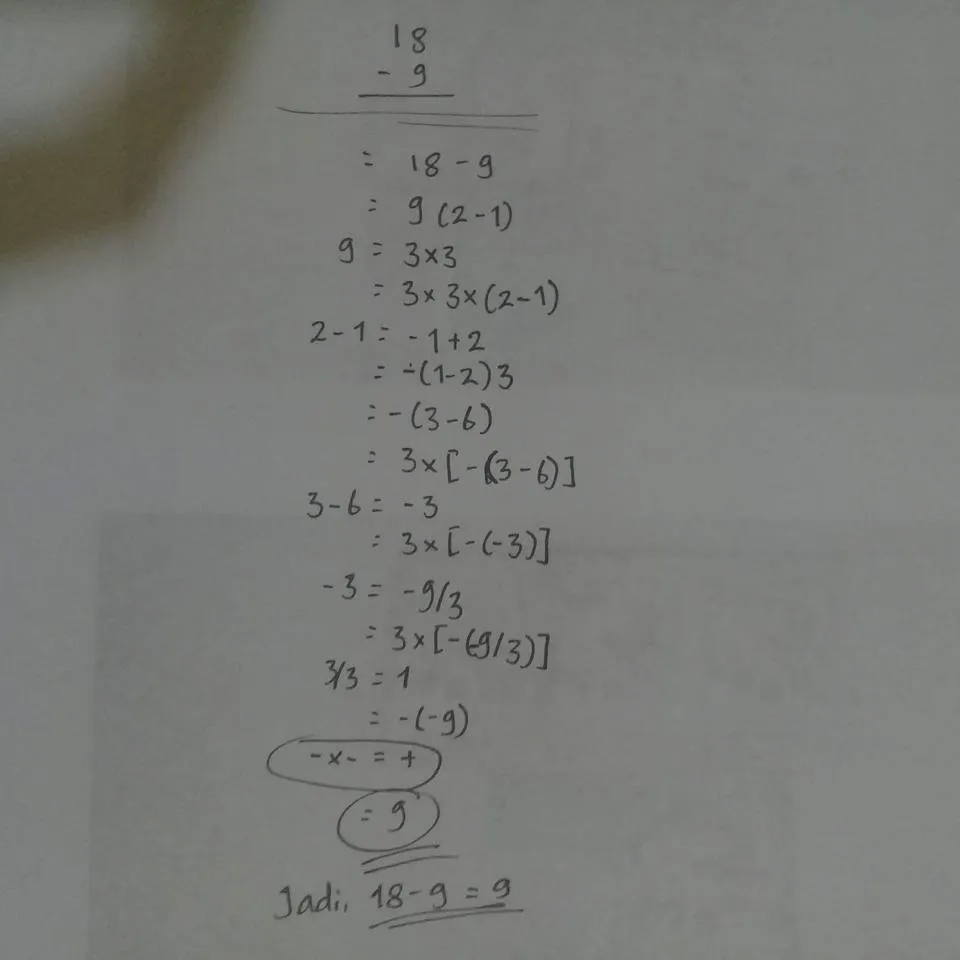 18
- 9
= 18 - 9
= 9 (2-1)
9 = 3×3
= 3×3×(2-1)
2-1 = -1+2
= -(1-2)3
= -(3-6)
= 3×[-(3-6)]
3-6 = -3
= 3×[-(-3)]
-3 = -9/3
= 3×[-(-9/3)]
3/3 = 1
= -(-9)
-×- = +
= 9
Jadi, 18-9 = 9